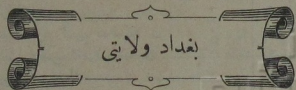 بغداد ولايتى